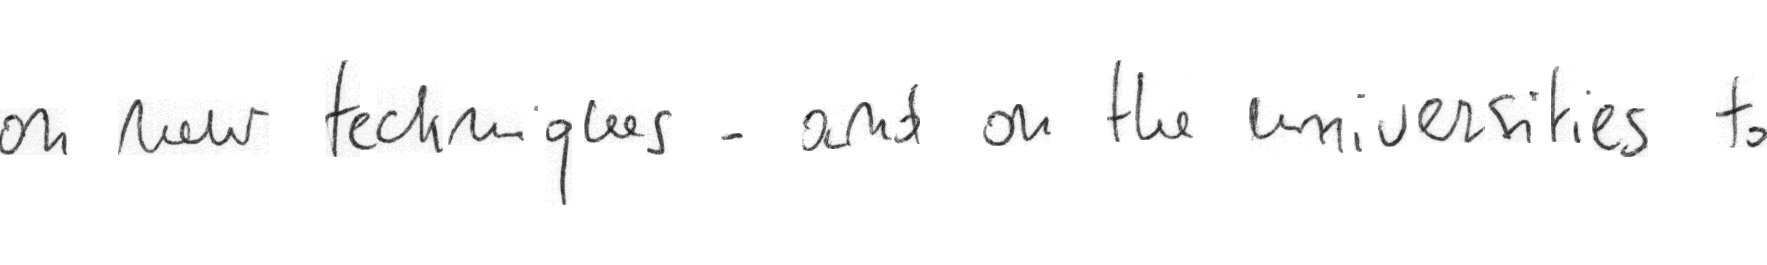 on new techniques - and on the universities to